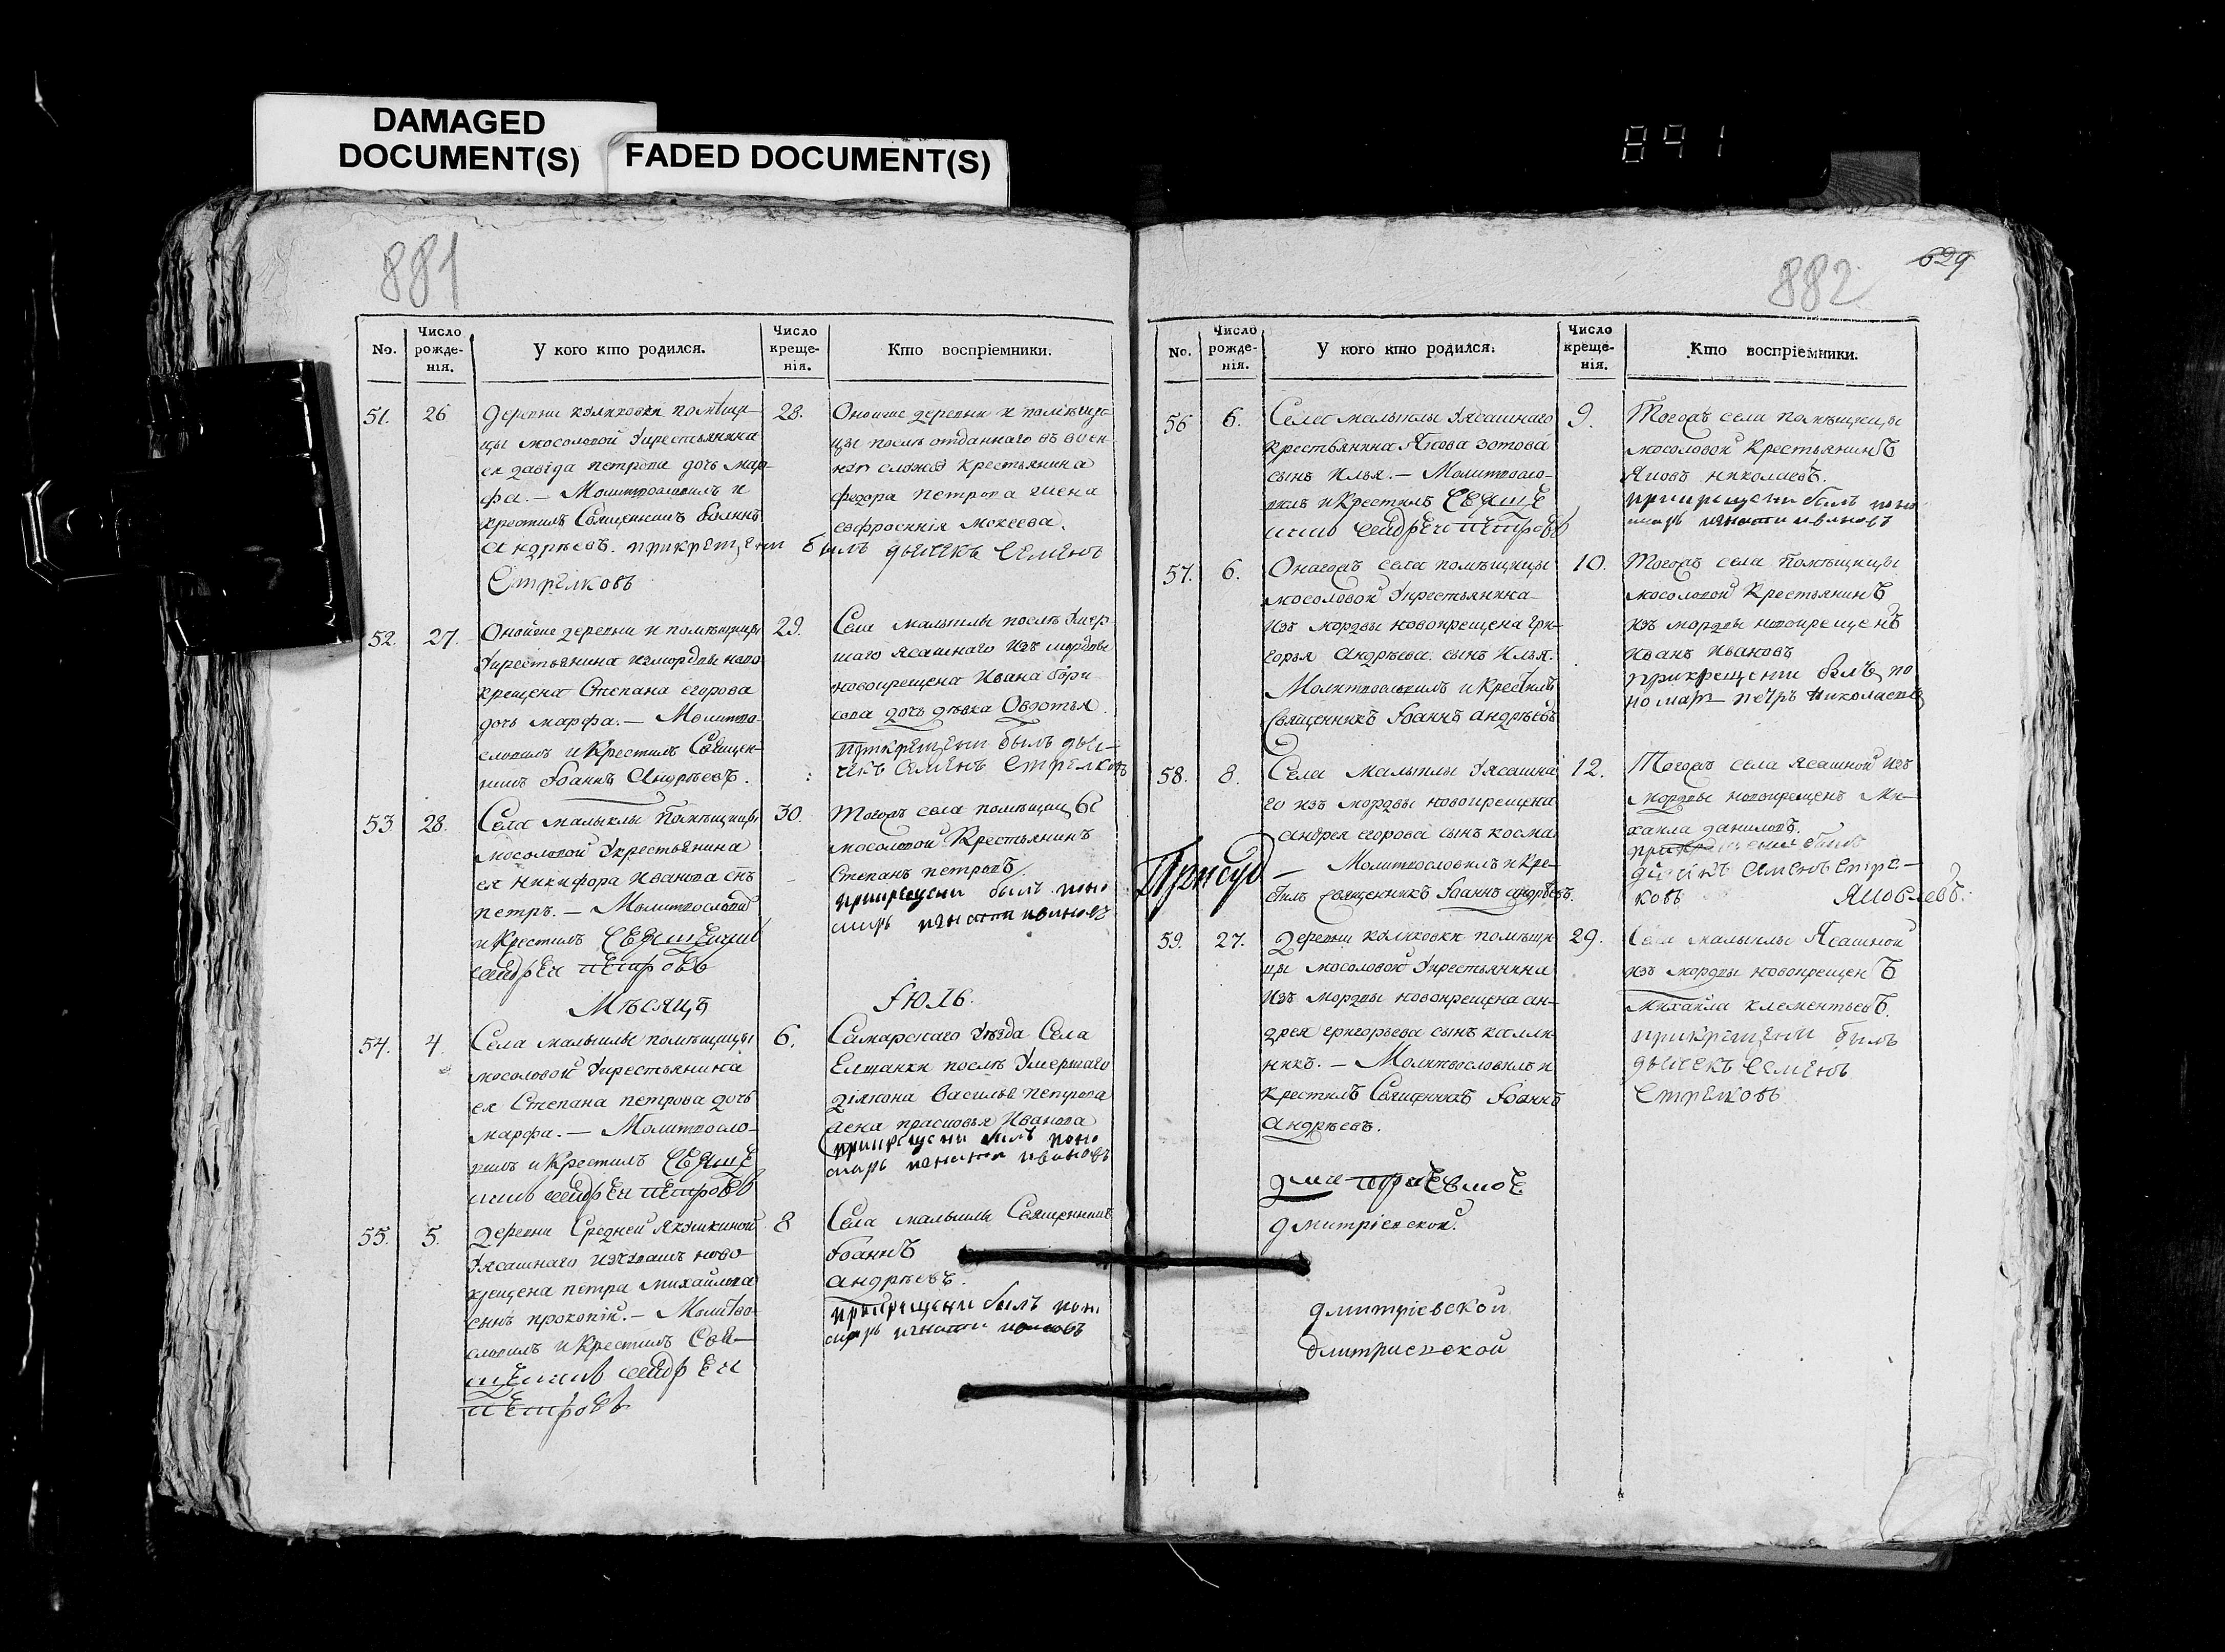 DAMAGED
DOCUMENT(S)
FADED DOCUMENT(S)
891
881
No.
Число
рожде-
нія.
У кого кто родился.
Число
креще-
нія.
Кто воспріемники.
51.
26
деревни кулиховки помѣщи-
цы мосоловой Укрестьянина
ея давіда петрова дочь мар-
фа. — Молитвословилъ и
крестилъ Священникъ Іоаннъ
андрѣевъ. прикрещени былъ дьячекъ Семенъ
Стрелковъ
28.
Оной же деревни и помѣщи-
цы послѣ отданнаго въ воен
крестьянина
федора петрова жена
евфросинія мокеева.
52.
27.
Оной же деревни и помѣщицы
Укрестьянина измордвы ново
крещена Степана егорова
дочь марфа. — Молитво-
словилъ и Крестилъ Священ-
никъ Іоаннъ Андрѣевъ.
29.
Села малыклы послѣ Умер
шаго ясашнаго изъ мордвы
новокрещена Ивана бори
сова дочь дѣвка Овдотья.
прикрещени былъ дья-
чекъ Семенъ Стрелковъ
53
28.
Села малыклы Помѣщицы
мосоловой Укрестьянина
ея никифора Иванова снъ
петръ. — Молитвословилъ
и Крестилъ Священникъ
андреи петровъ
30.
Тогожъ села помѣщицы
мосоловой Крестьянинъ
Степанъ петровъ.
прикрещени былъ поно
марь игнатии ивановъ
Мѣсяцъ
Іюль.
54.
4.
Села малыклы помѣщицы
мосоловой Укрестьянина
ея Степана петрова дочь
марфа. — Молитвосло-
вилъ и Крестилъ Свяще
никъ андреи петровъ
6.
Самарскаго Уѣзда Села
Елшанки послѣ Умершаго
діякона Василья петрова
жена прасковья Иванова
прикрещени былъ поно
марь игнатии ивановъ
55.
5.
деревни Средней Якушкиной
Уясашнаго изчювашъ ново-
крещена петра михайлова
сынъ прокопій. — Молитво-
словилъ и Крестилъ Свя-
щеникъ андреи
петровъ
8
Села малыклы Священникъ
Іоаннъ
андрѣевъ.
прикрещени былъ поно
марь игнатии ивановъ
882
629
No.
Число
рожде-
нія.
У кого кто родился.
Число
креще-
нія.
Кто воспріемники.
56
6.
Села малыклы Уясашнаго
крестьянина Якова зотова
сынъ Илья. — Молитвосло-
вилъ и Крестилъ Свяще
никъ андреи петровъ
9.
Тогожъ села помѣщицы
мосоловой Крестьянинъ
Яковъ николаевъ.
прикрещени былъ поно
марь игнатии ивановъ
57.
6.
Оногожъ села помѣщицы
мосоловой Укрестьянина
изъ мордвы новокрещена гри-
горья андрѣева. сынъ Илья.
Молитвословилъ и Крестилъ
Священникъ Іоаннъ андрѣевъ
10.
Тогожъ села Помѣщицы
мосоловой Крестьянинъ
изъ мордвы новокрещенъ
Иванъ Ивановъ
прикрещени былъ по
номарь петръ николаевъ
58.
8.
Села Малыклы Уясашна
го изъ мордвы новокрещена
андрея егорова сынъ косма
— Молитвословилъ и Кре-
стилъ священникъ Іоаннъ андрѣевъ.
12.
Тогожъ села ясашной изъ
мордвы новокрещенъ Ми-
хаила даниловъ.
прикрещени былъ
дьячикъ Семенъ Стре-
ковъ
Яковлевъ.
Присуд
59.
27.
Деревни кулиховки помѣщи
цы мосоловой Укрестьянина
изъ мордвы новокрещена ан-
дрея григорьева сынъ калли-
никъ. — Молитвословилъ и
крестилъ Священникъ Іоаннъ
андрѣевъ.
29.
Села малыклы Ясашной
изъ мордвы новокрещенъ
Михаила клементьевъ.
прикрещени былъ
дьячекъ Семенъ
Стрелковъ
дмитриевскои
дмитріевской.
дмитріевской
дмитриевской